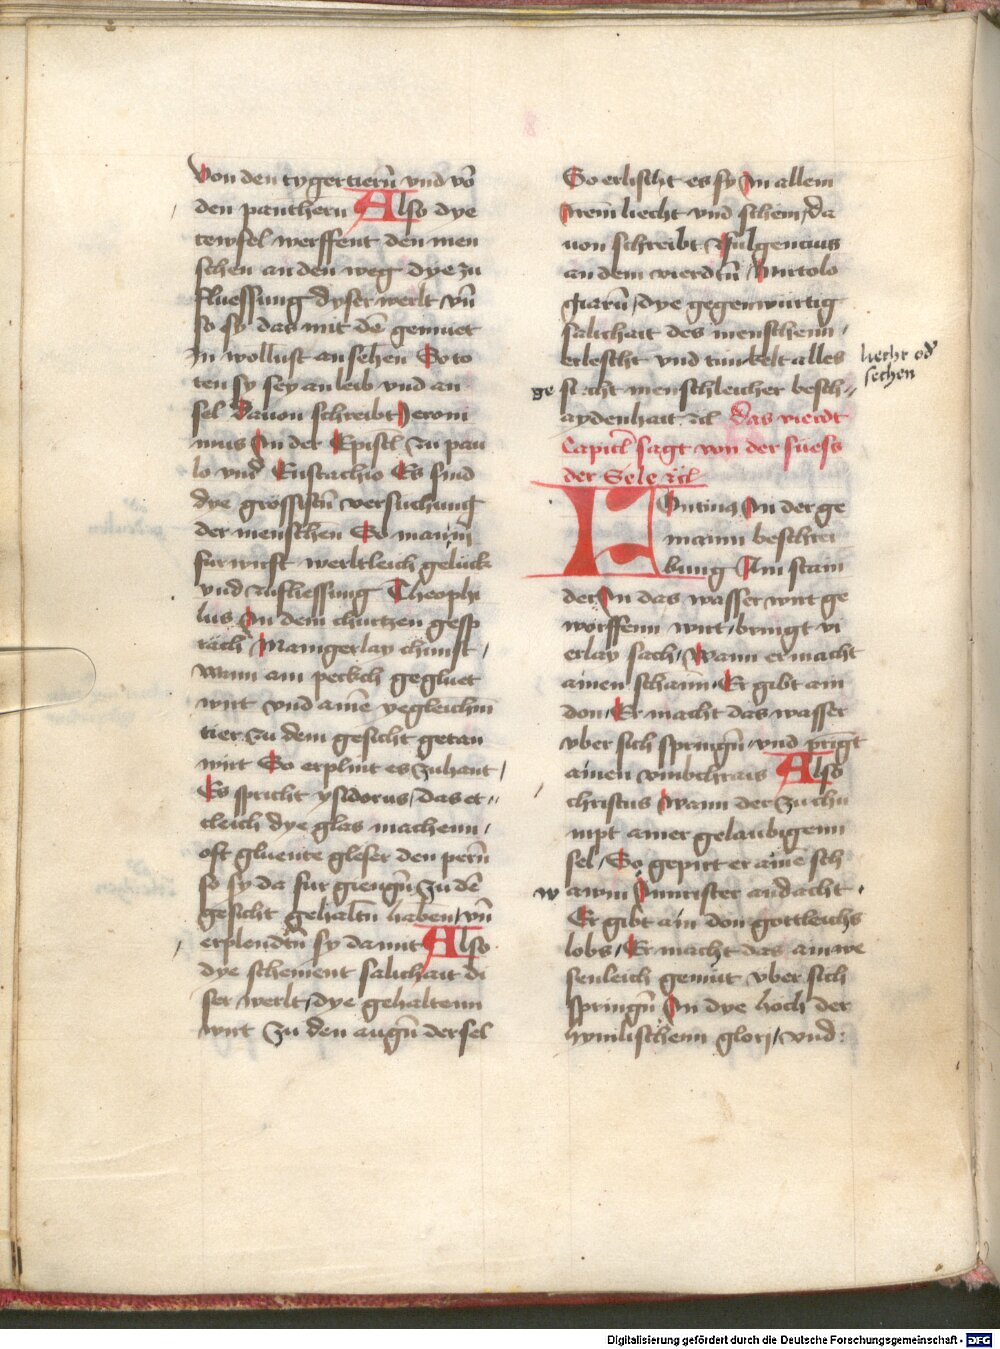 Von den tygertiern̄ vnd vō
den panthern Also dye
tewfel werffent den men
schen an den weg dye zu
fluessung dyser werlt vn̄
so sy das mit dē gemuet
In wollust ansehen So to
ten sy sey an leib vnd an
sel Dauon schreibt Jeroni
mus In der Epistl zu pau
lo vnd Eustachio Es sind
dye grössistn̄ versuchung
der menschen So man im
furwirft werltleich gelück
vnd zufliessung Theophi
lus In dem churtzen gesp
räch Manigerlay chunst /
Wann ain peckch gegluet
wirt vnd aīnē yegleichm̄
tier zu dem gesicht getan
wirt So erplint es zuhant /
Es spricht ysidorus / das et⸗
tleich dye glas machenn /
oft gluente gleser den pern̄
so sy da fur giengn̄ zu dē
gesicht gehaltn̄ haben / vn̄
erplendtn̄ sy damit Also
dye scheinent salichait di
ser werlt / dye gehaltenn
wirt zu den augn̄ der sel
So erlischt es sy In allem
Irem liecht vnd schein / da
uon schreibt Fulgencius
an dem vierdtn̄ Mitolo
giarū / dye gegenwürtig
salichait des menschenn /
erlescht vnd tunkelt alles
liecht od̕
sechen
geslecht menschleicher besch⸗
aydenhait ⁊c̄ Das vierdt
Capitl sagt von der süess
der Sele ⁊c̄
Entring In der ge
mainn beschrei
bung Ain stain
der In das wasser wirt ge
worffenn wirt / bringt vi
erlay sach / Wann er macht
ainen schaim / Er gibt ain
don / Er macht das wasser
vber sich springn̄ / vnd pringt
ainen vmbchrais Also
christus Wann der zu chu
mpt ainer gelaubigenn
sel / So gepirt er ainē sch
wawm Innrister andacht /
Er gibt ain don gottleichs
lobs / Er macht das ainwe
senleich gemüt vber sich
springn̄ In dye höch der
hymlischenn glorj / vnd :
Digitalisierung gefördert durch die Deutsche Forschungsgemeinschaft - DFG